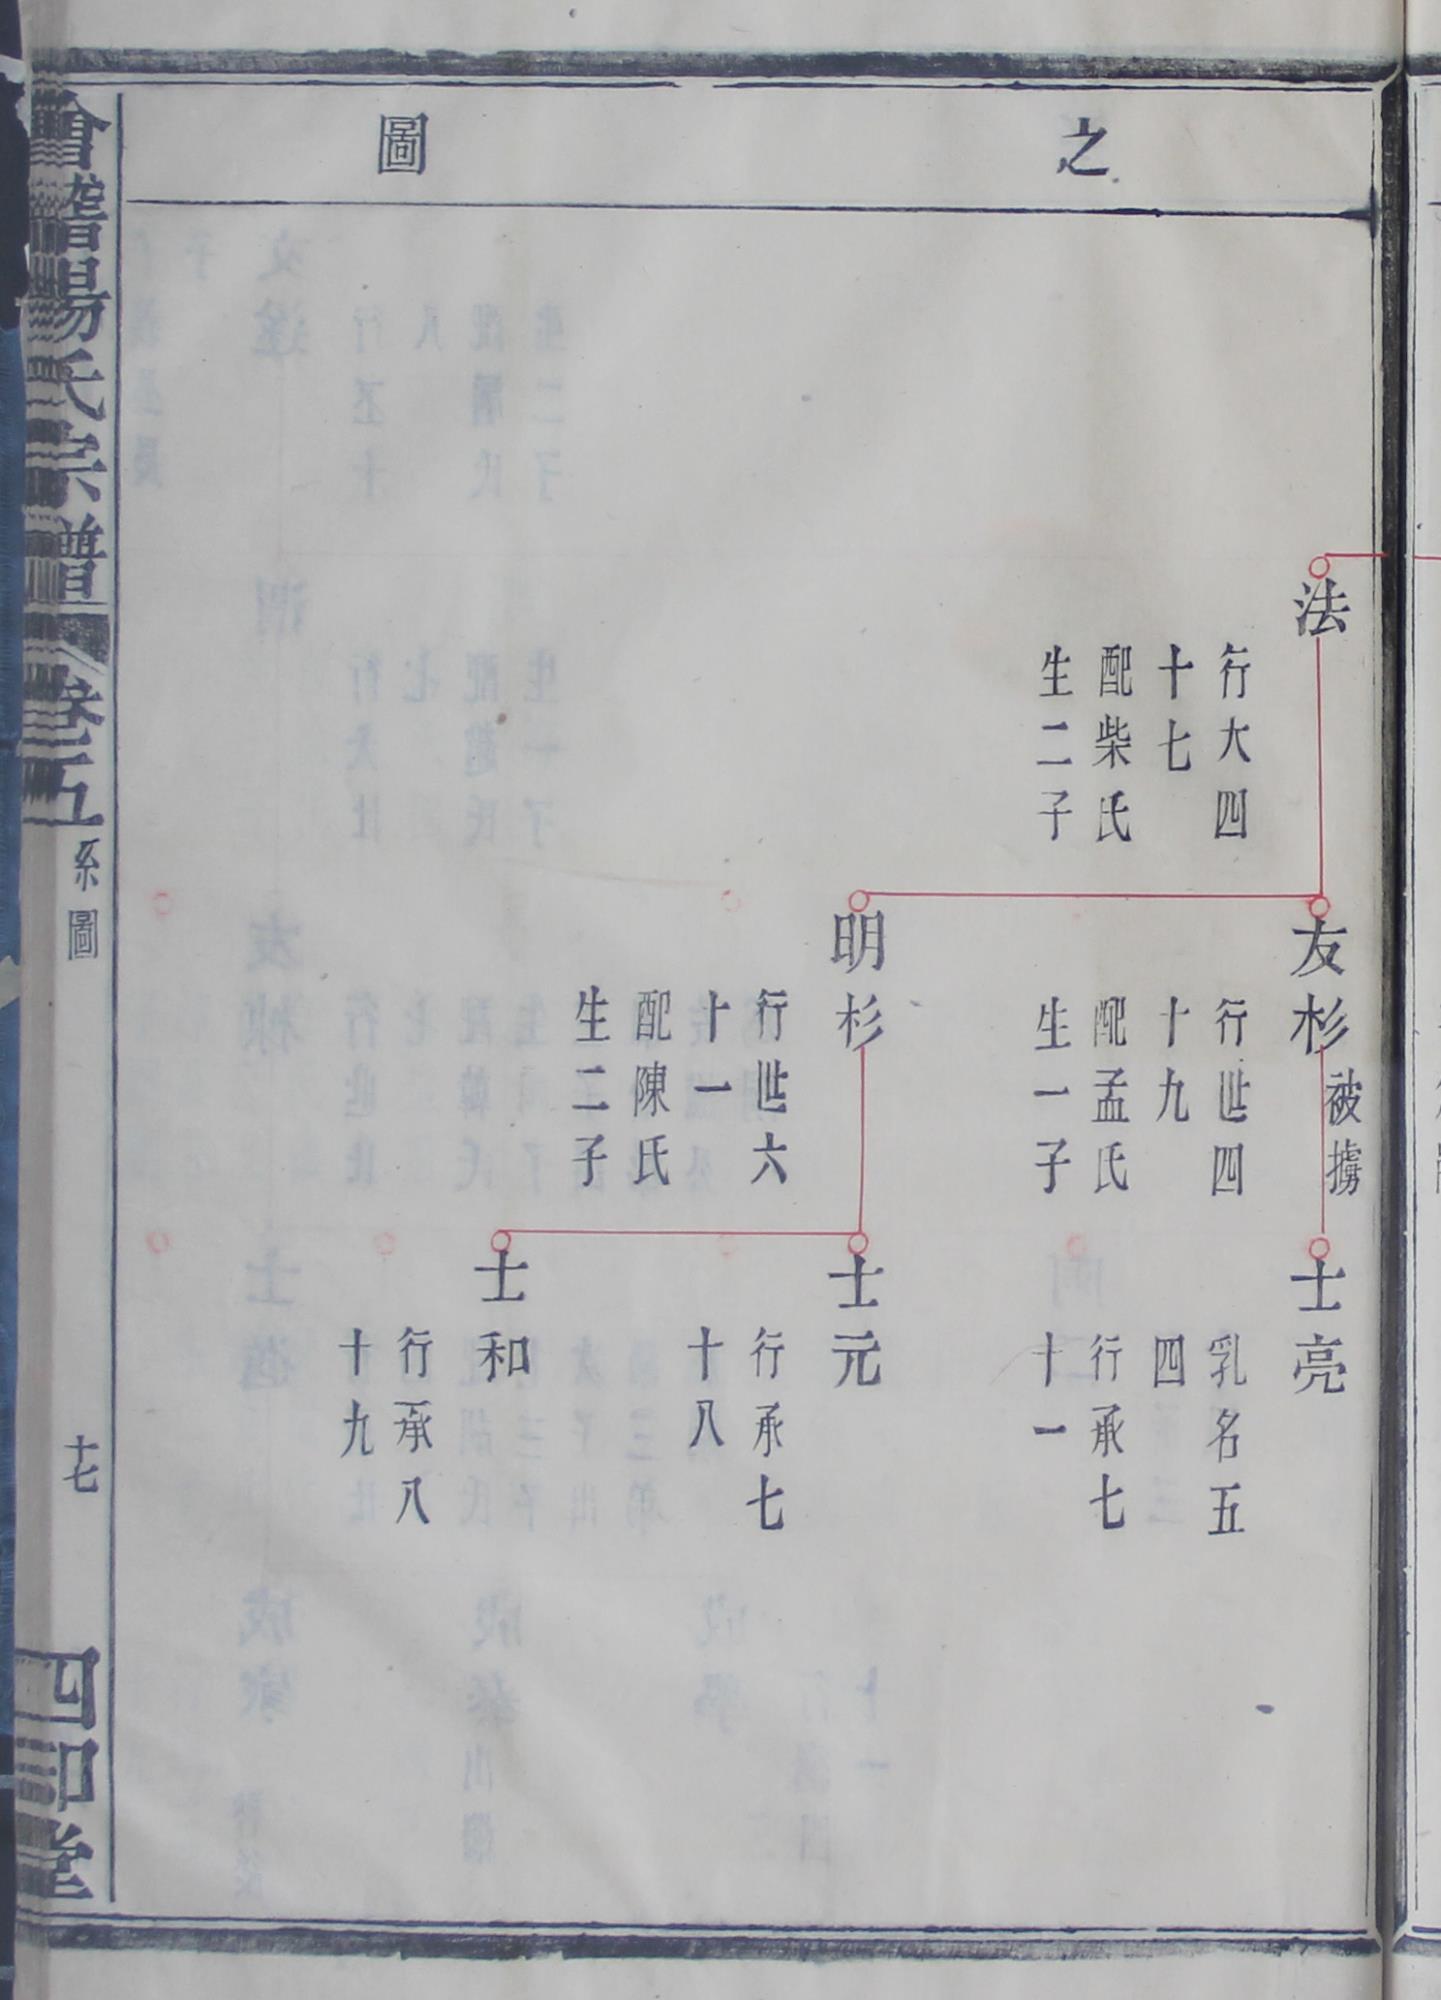 之
圖
法
行大四
十七
配柴氏
生二子
友杉
被擄
行世四
十九
配孟氏
生一子
明杉
行世六
十一
配陳氏
生二子
士亮
乳名五
四
行承七
十一
士元
行承七
十八
士和
行承八
十九
會稽楊氏宗譜
卷五
系圖
十七
四知堂